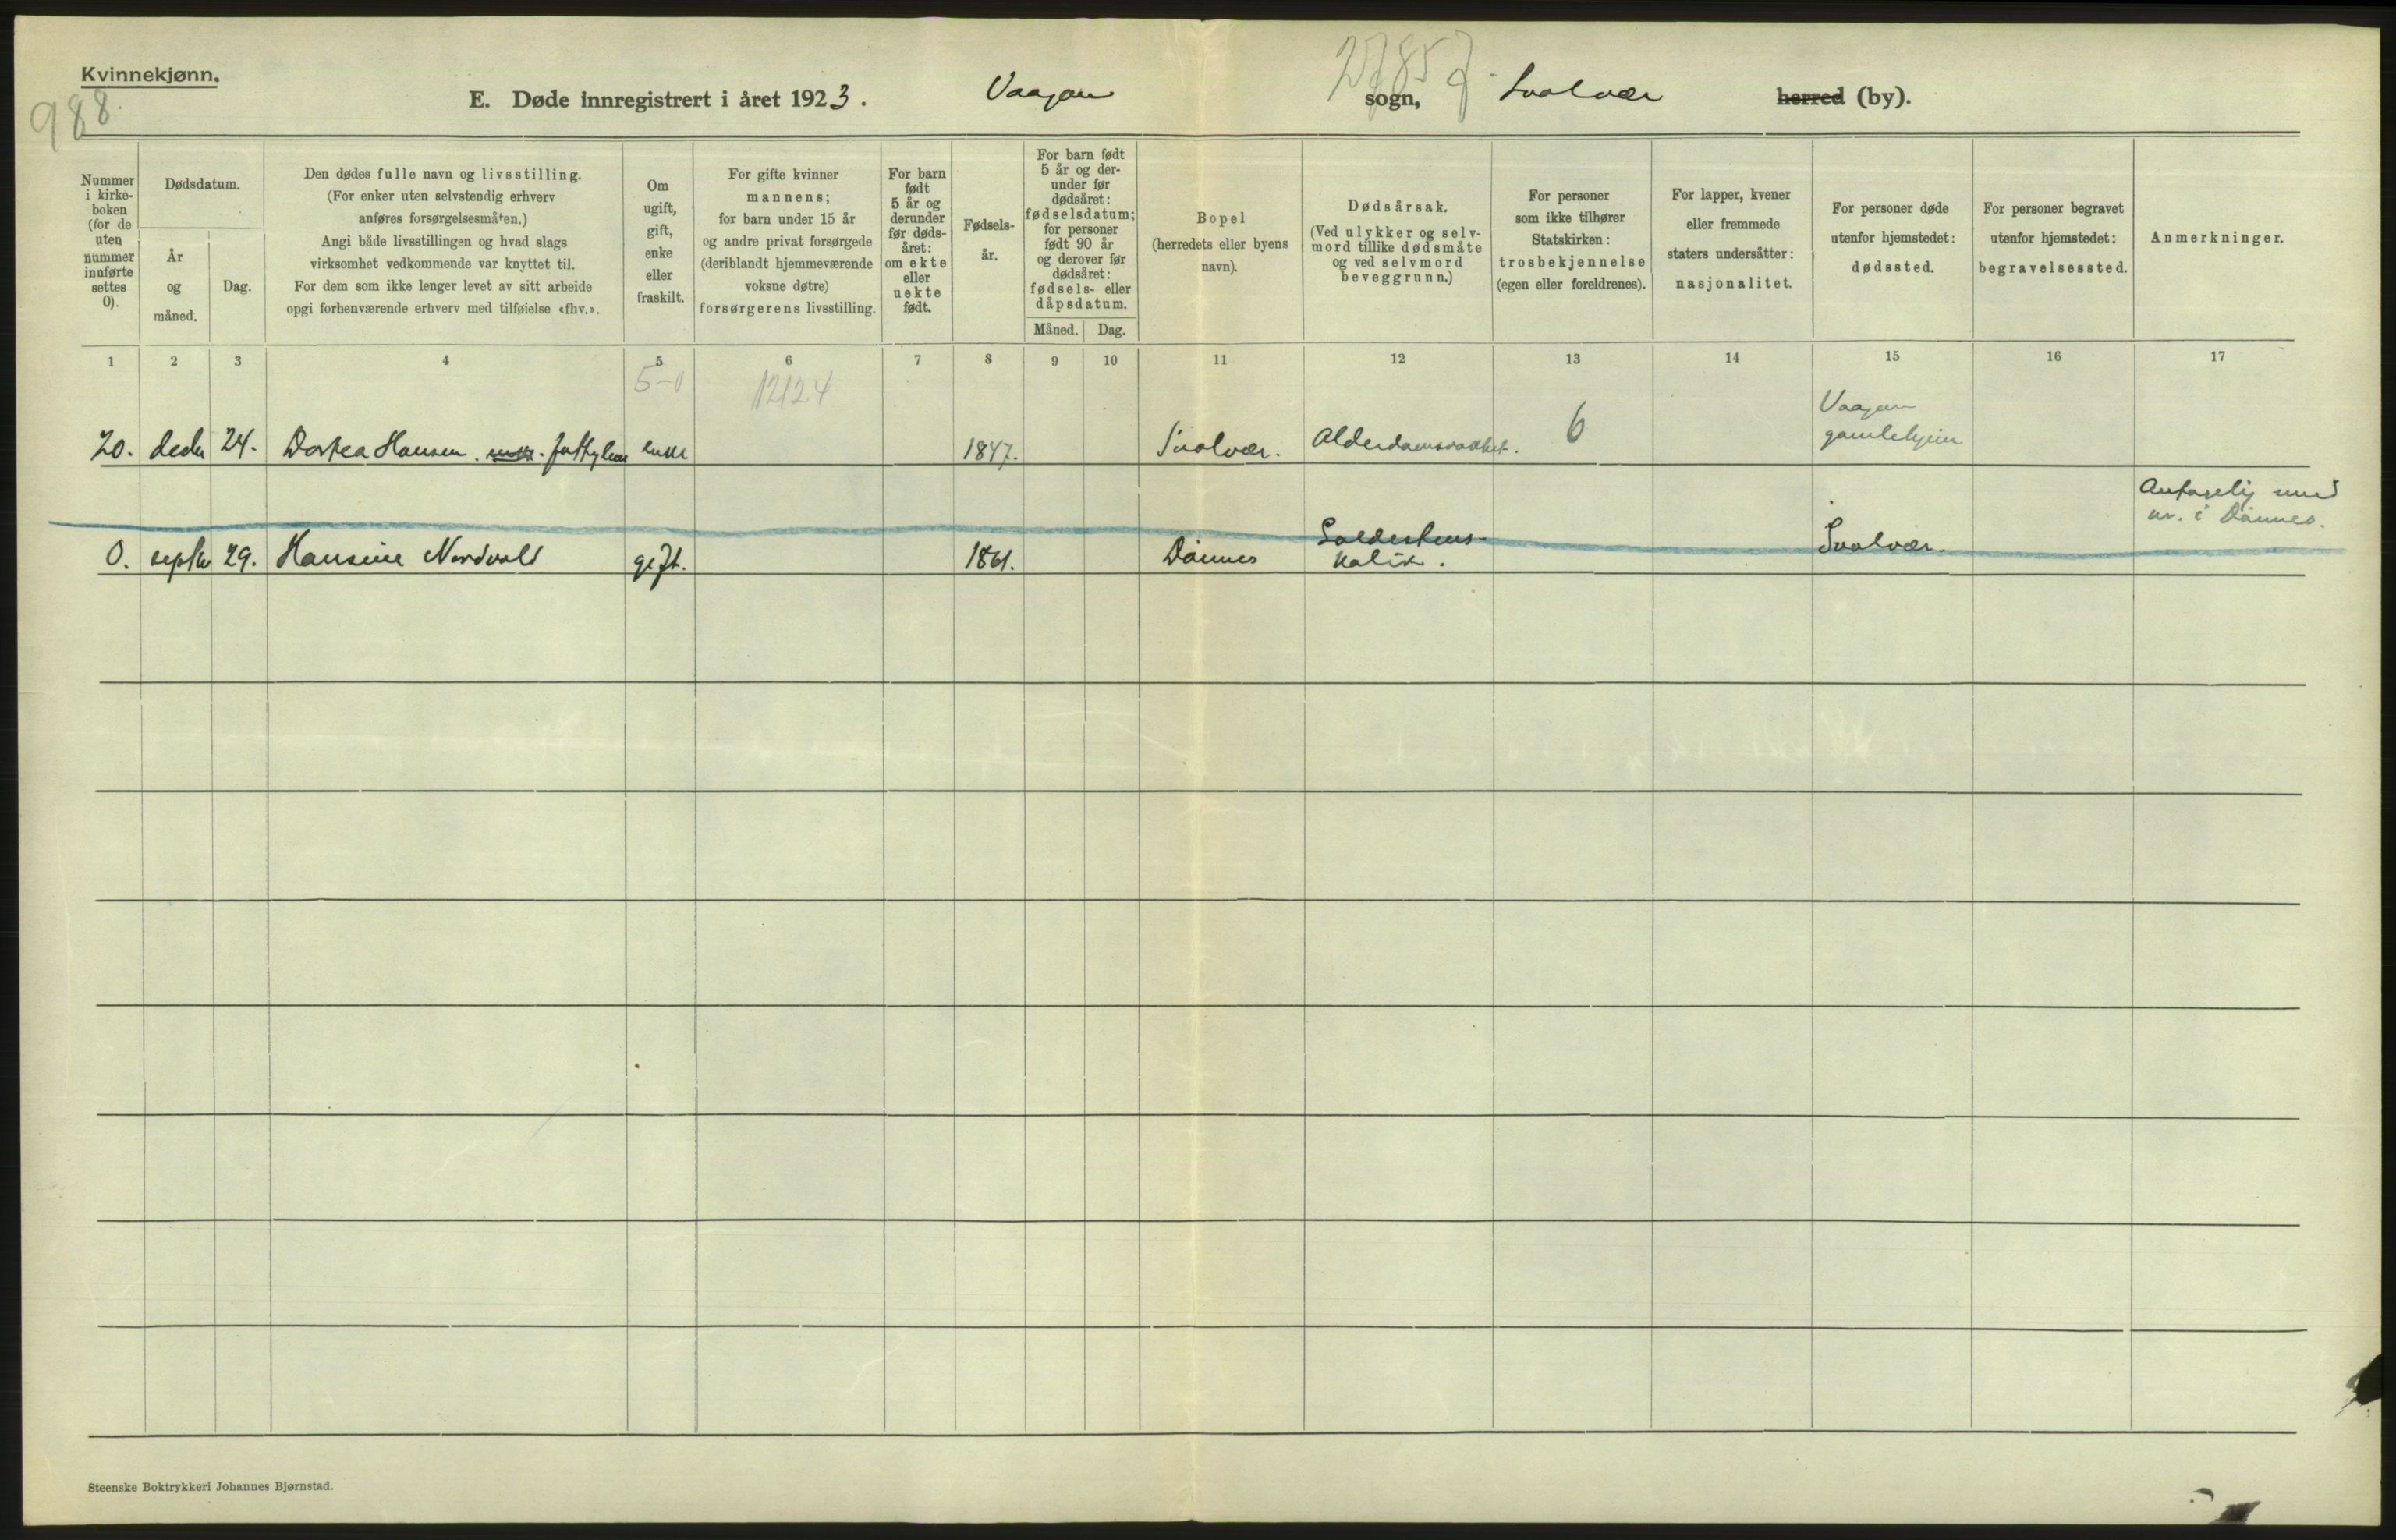 Kvinnekjønn.
988.
E. Døde innregistrert i året 1923. Vaagan sogn, Svolvær herred (by).
Nummer i kirke- boken (for de uten nummer innførte settes 0).
Dødsdatum.
År og måned.
Dag.
Den dødes fulle navn og livsstilling.
(For enker uten selvstendig erhverv
anføres forsørgelsesmåten.)
Angi både livsstillingen og hvad slags
virksomhet vedkommende var knyttet til.
For dem som ikke lenger levet av sitt arbeide
opgi forhenværende erhverv med tilføielse «fhv.».
Om ugift, gift, enke eller fraskilt.
For gifte kvinner
mannens;
for barn under 15 år
og andre privat forsørgede
(deriblandt hjemmeværende
voksne døtre)
forsørgerens livsstilling.
For barn født 5 år og derunder før døds- året: om ekte eller uekte født.
Fødsels- år.
For barn født
5 år og der-
under før
dødsåret:
fødselsdatum;
for personer
født 90 år
og derover før
dødsåret:
fødsels- eller
dåpsdatum.
Måned. Dag.
Bopel
(herredets eller byens
navn).
Dødsårsak.
(Ved ulykker og selv-
mord tillike dødsmåte
og ved selvmord
beveggrunn.)
For personer
som ikke tilhører
Statskirken:
trosbekjennelse
(egen eller foreldrenes).
For lapper, kvener
eller fremmede
staters undersåtter:
nasjonalitet.
For personer døde
utenfor hjemstedet:
dødssted.
For personer begravet
utenfor hjemstedet:
begravelsessted.
Anmerkninger.
1 2 3 4 5 6 7 8 9 10 11 12 13 14 15 16 17
5-0 12124
20. decbr 24. Dortea Hansen. enke 1847. Svolvær. Alderdomssvakhet. 6 Vaagan
gamlehjem
0. septbr 29. Hansine Nordvold gift. 1861. Dønnes Galdestens-
kolik. Svolvær. Antagelig med
nr. i Dønnes.
Steenske Boktrykkeri Johannes Bjørnstad.